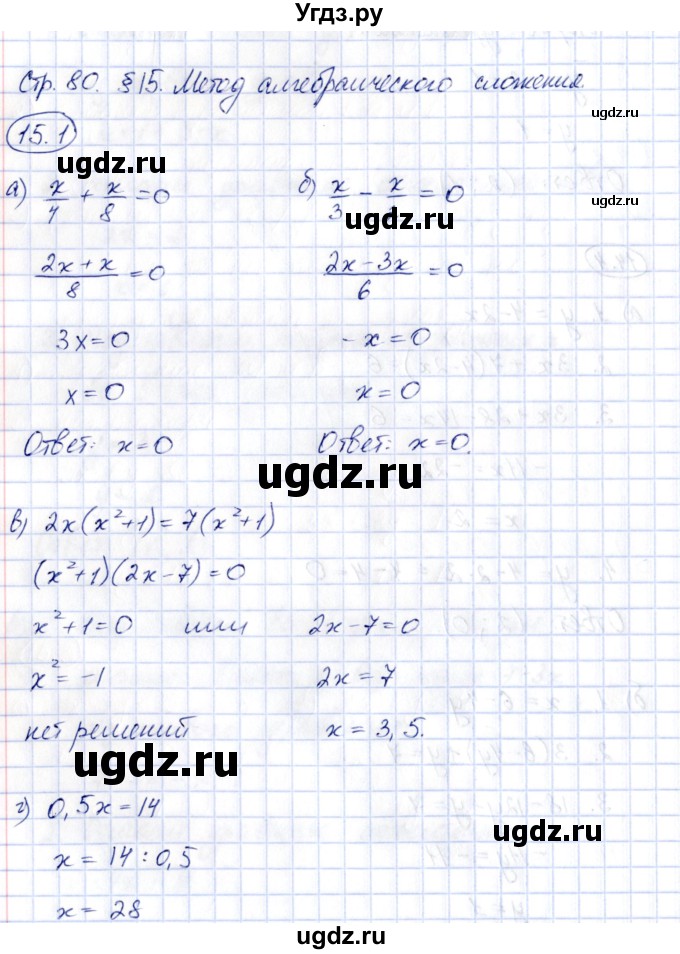 Угдз.ру
Стр. 80. §15. Метод алгебраического сложения.
15.1
ugdz.ru
а) x/4 + x/8 = 0
б) x/3 - x/ = 0
ugdz.ru
(2x+x)/8 = 0
(2x-3x)/6 = 0
3x=0
-x=0
x=0
x=0
Ответ: x=0
Ответ: x=0.
ugdz.ru
в) 2x(x²+1)=7(x²+1)
(x²+1)(2x-7)=0
x²+1=0 или 2x-7=0
x²=-1
2x=7
нет решений
x=3,5.
ugdz.ru
г) 0,5x=14
ugdz.ru
x=14:0,5
x=28
ugdz.ru